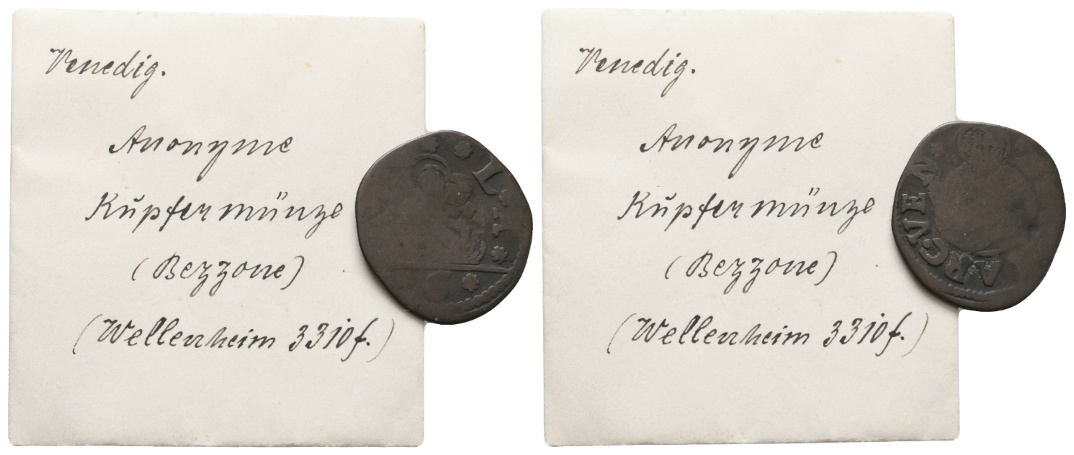 Venedig.
Anonyme
Kupfermünze
(Bezzone)
(Wellenheim 3310f.)
Venedig.
Anonyme
Kupfermünze
(Bezzone)
(Wellenheim 3310f.)
ARC·VEN·